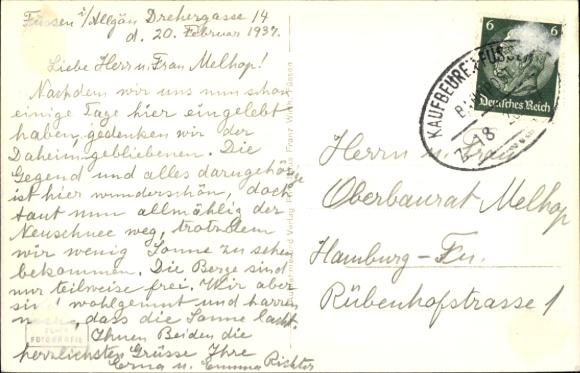 Füssen i/Allgäu Drehergasse 14
d. 20. Februar 1937.
Liebe Herr u. Frau Melhop!
Nachdem wir uns nun schon
einige Tage hier eingelebt
haben, gedenken wir der
Daheimgebliebenen. Die
Gegend und alles darumgehörige
ist hier wunderschön, doch
taut nun allmählig der
Neuschnee weg, trotzdem
wir wenig Sonne zu sehen
bekommen. Die Berge sind
nur teilweise frei. Wir aber
sind wohlgemut und harren
dass die Sonne lacht.
Ihnen Beiden die
herzlichsten Grüsse Ihre
Erna u. Emma Richter
FOTOGRAFIE
und Verlag Franz Füssen
6 6
Deutsches Reich
KAUFBEUREN-FÜSSEN
Z. 18
Herrn u. Frau
Oberbaurat Melhop
Hamburg-Fu.
Rübenhofstrasse 1